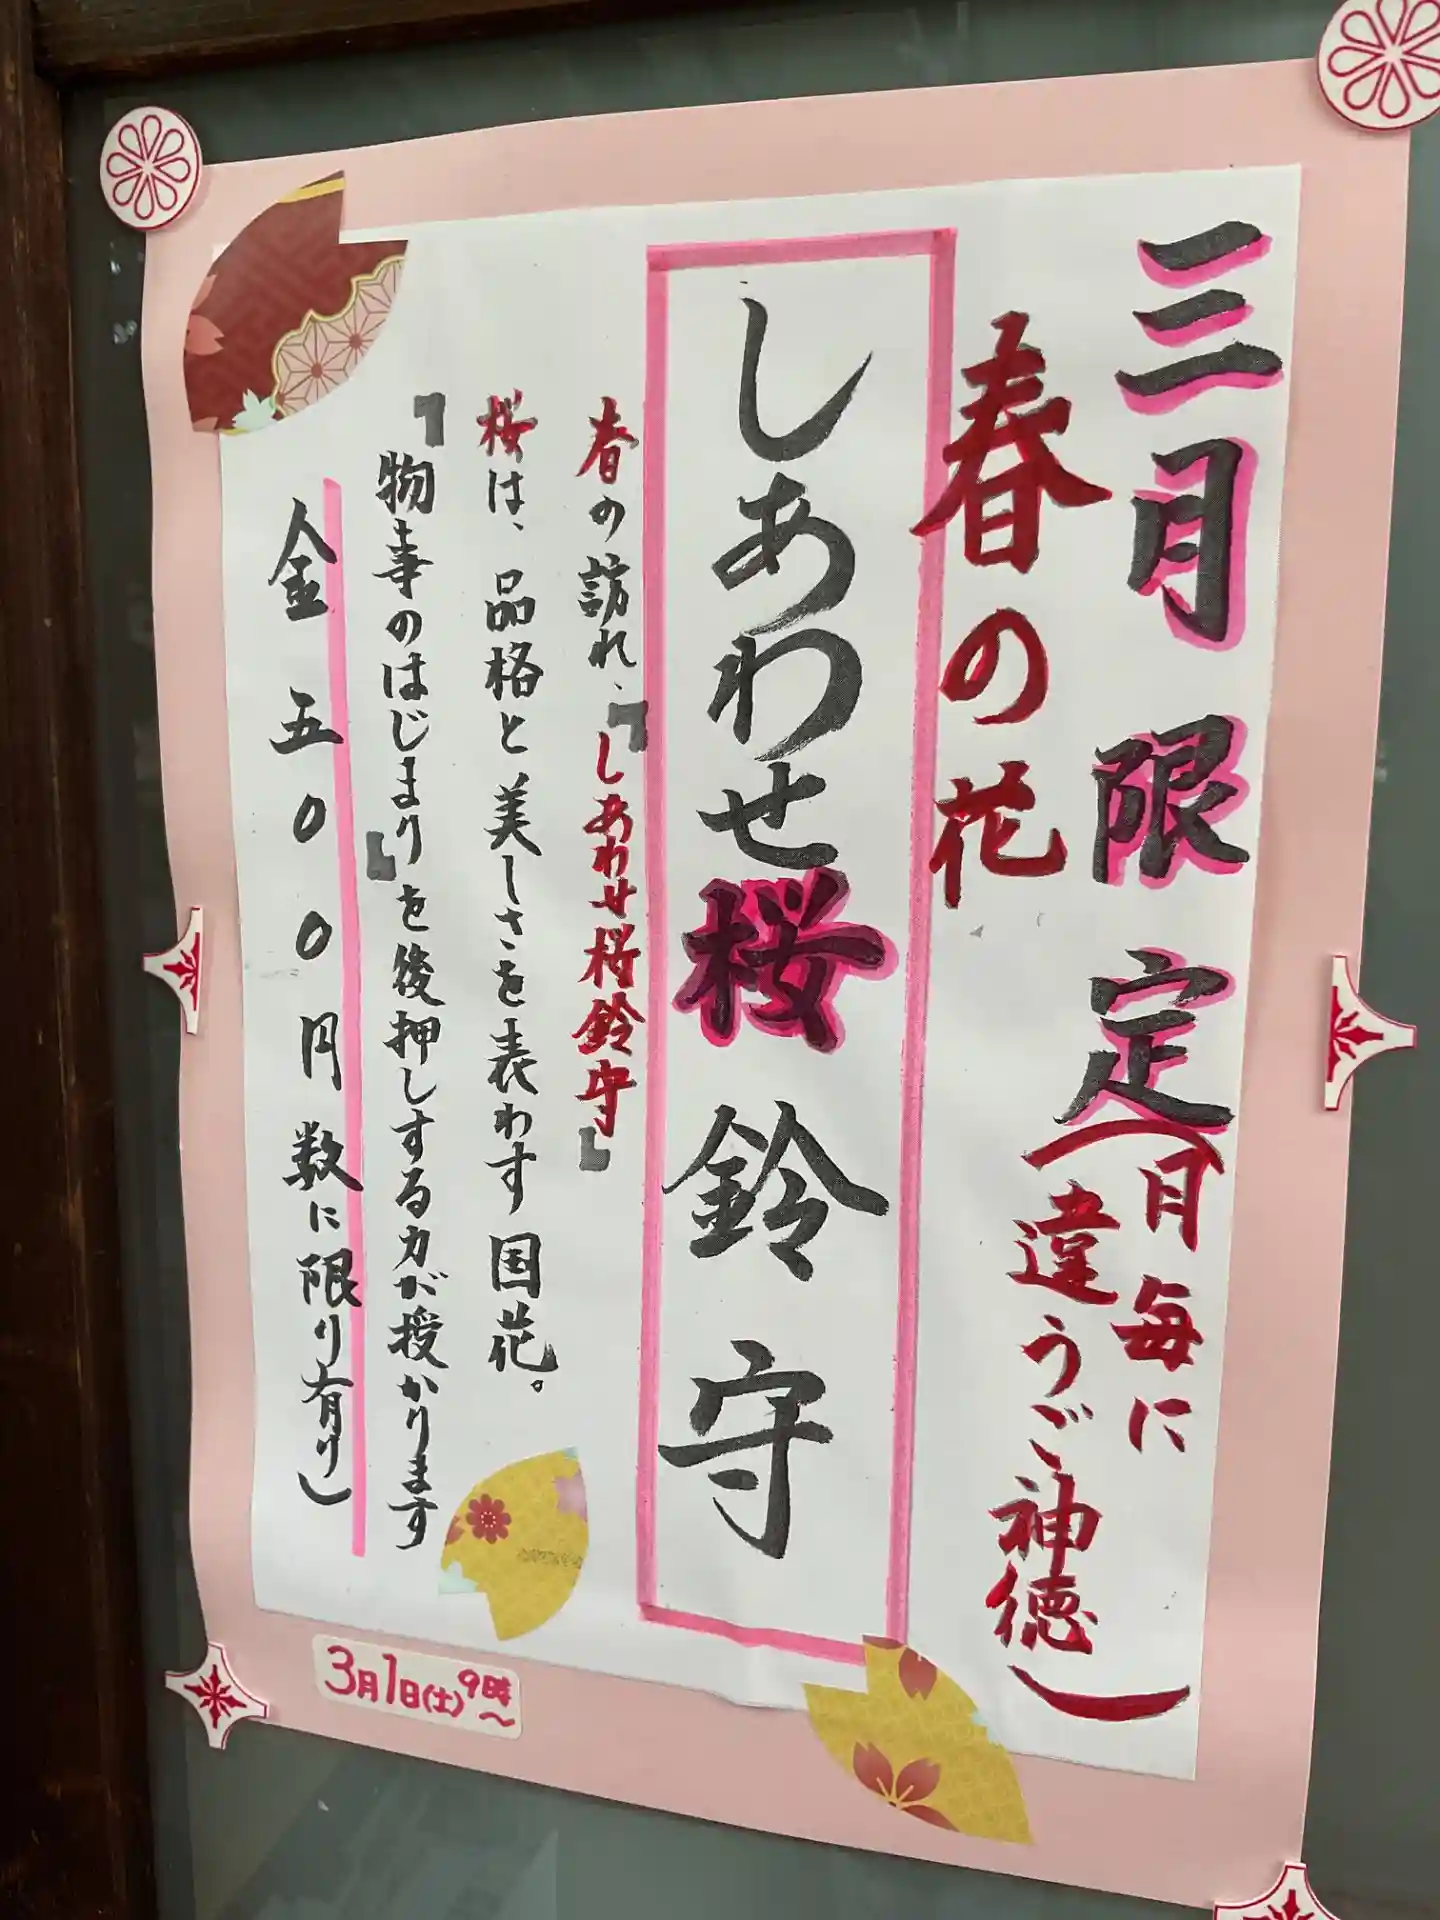 三月限定(月毎に
違うご神徳)
春の花
しあわせ桜鈴守
春の訪れ、「しあわせ桜鈴守」
桜は、品格と美しさを表わす国花。
「物事のはじまり」を後押しする力が授かります
金五00円数に限り有り)
3月1日(土)9時~